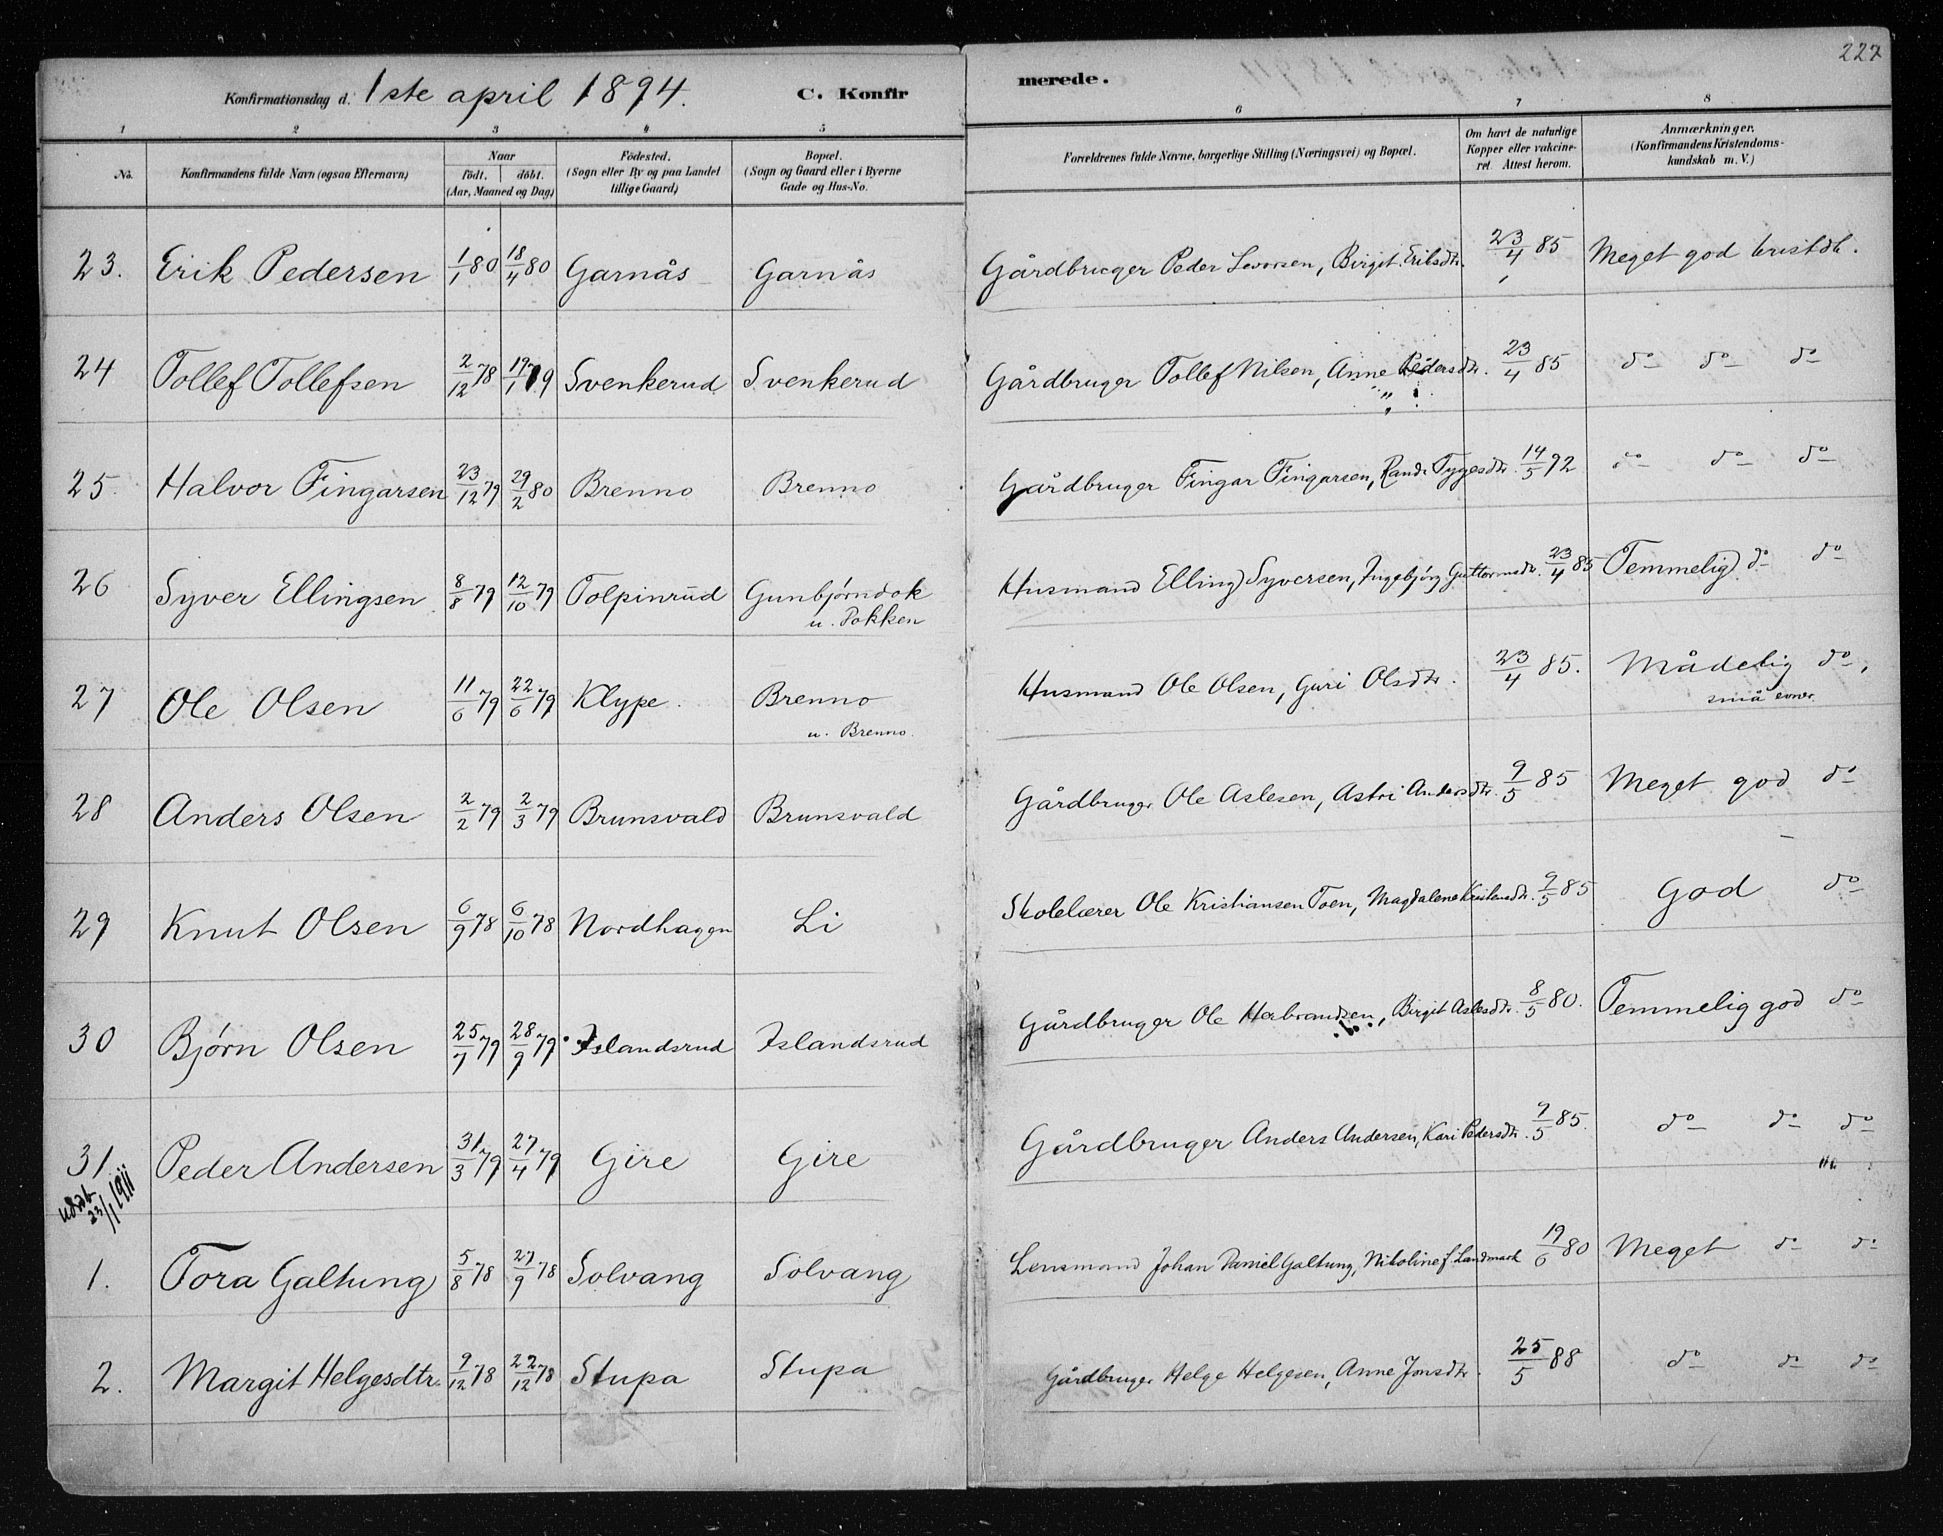 227
Konfirmationsdag d. 1ste april 1894. C. Konfir merede.
1 2 3 4 5 6 7 8
No. Konfirmandens fulde Navn (ogsaa Efternavn) Naar født. døbt. (Aar, Maaned og Dag) Fødested. (Sogn eller By og paa Landet tillige Gaard) Bopæl. (Sogn og Gaard eller i Byerne Gade og Hus-No. Forældrenes fulde Navne, borgerlige Stilling (Næringsvei) og Bopæl. Om havt de naturlige Kopper eller vakcineret. Attest herom. Anmærkninger. (Konfirmandens Kristendomskundskab m. V.)
23. Erik Pedersen 1/1 80 18/4 80 Garnås Garnås Gårdbruger Peder Levorsen, Birgit Eriksdtr. 23/4 85 Meget god kristdk.
24 Tollef Tollefsen 2/12 78 19/1 79 Svenkerud Svenkerud Gårdbruger Tollef Nilsen, Anne Pedersdtr. 23/4 85 do do do
25. Halvor Fingarsen 23/12 79 29/2 80 Brenno Brenno Gårdbruger Fingar Fingarsen, Randi Tygesdtr. 14/5 92 do do do
26 Syver Ellingsen 8/8 79 12/10 79 Tolpinrud Gunbjørndok Husmand Elling Syversen, Ingebjørg Guttormsdr. 23/4 85 Temmelig do do
u. Pokken
27 Ole Olsen 11/6 79 22/6 79 Klype. Brenno Husmand Ole Olsen, Guri Olsdtr. 23/4 85. Mådelig do,
u. Brenno. små evner.
28 Anders Olsen 2/2 79 2/3 79 Brunsvald Brunsvald Gårdbruger Ole Aslesen, Astri Andersdtr. 9/5 85 Meget god do
29 Knut Olsen 6/9 78 6/10 78 Nordhagen Li Skolelærer Ole Kristiansen Toen, Magdalene Kristensdtr. 9/5 85 God do
30 Bjørn Olsen 25/7 79 28/9 79 Islandsrud Islandsrud Gårdbruger Ole Herbrandsen, Birgit Aslesdtr. 8/5 80. Temmelig god do
31. Peder Andersen 31/3 79 27/4 79 Gire Gire Gårdbruger Anders Andersen, Kari Pedersdtr. 7/5 85. do do do
23/1 1911
1. Tora Galtung 5/8 78 27/9 78 Solvang Solvang Lensmand Johan Daniel Galtung, Nikoline f. Landmark 19/6 80 Meget do do
2. Margit Helgesdtr. 9/12 78 22/12 78 Stupa Stupa Gårdbruger Helge Helgesen, Anne Jonsdtr. 25/5 88 do do do